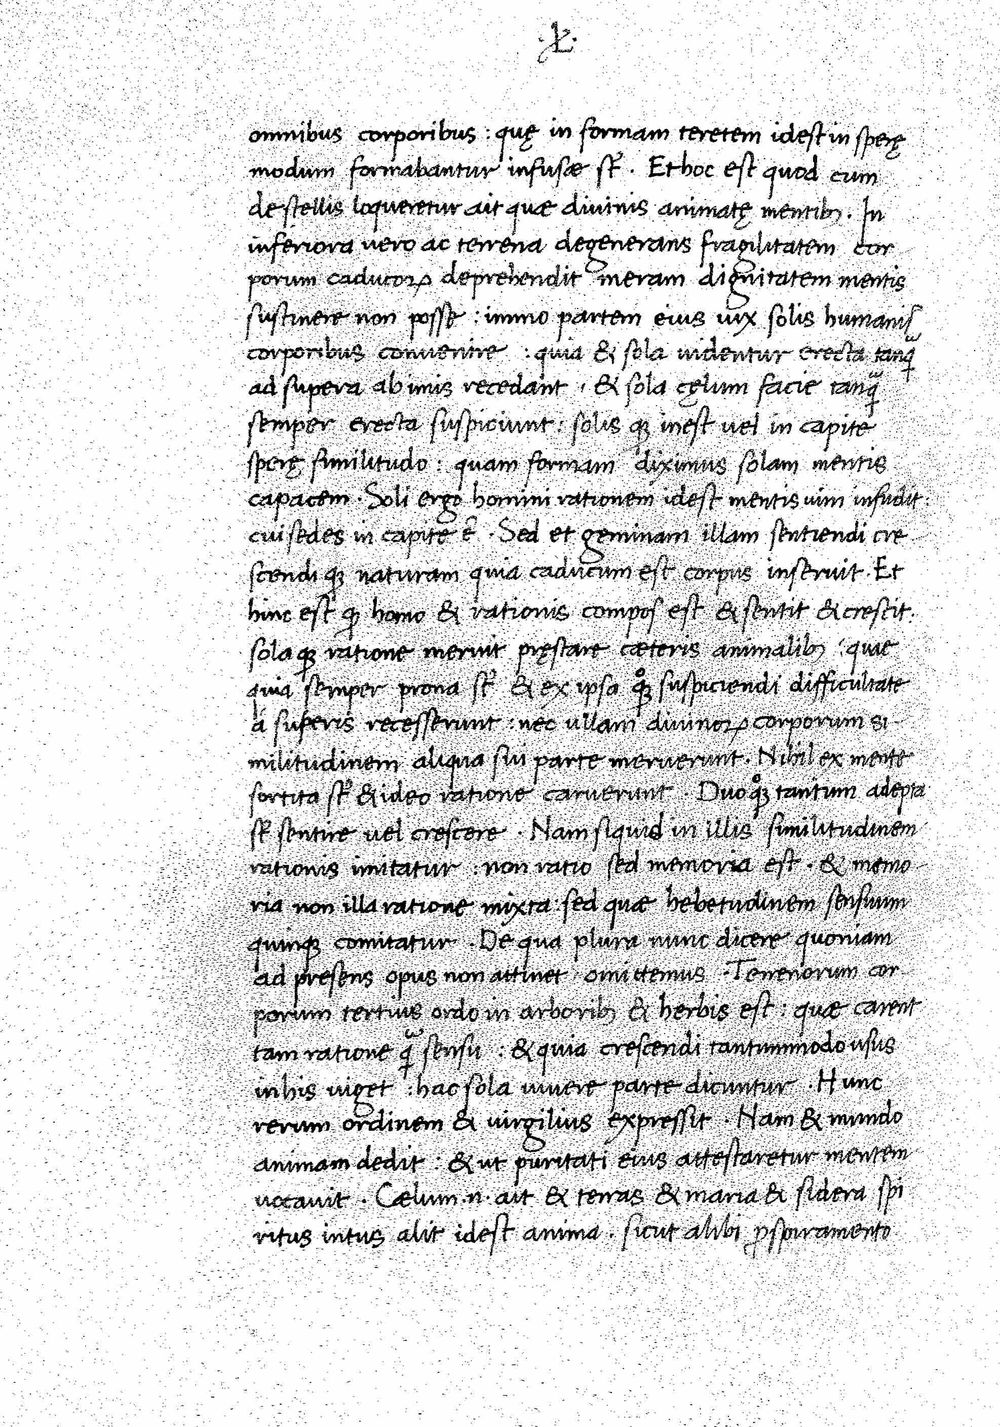 ·XL·
omnibus corporibus : quę in formam teretem idest in sperę
modum formabantur infusæ st̃ . Et hoc est quod cum
de stellis loqueretur ait quæ diuinis animatę mentibꝫ . In
inferiora uero ac terrena degenerans fragilitatem cor
porum caducoꝝ deprehendit meram dignitatem mentis
sustinere non posse : immo partem eius uix solis humanis
corporibus conuenire : quia & sola uidentur erecta tanq̃
ad supera ab imis recedant , & sola cęlum facie tanq̃
semper erecta suspiciunt : solis qꝫ inest uel in capite
sperę similitudo : quam formam diximus solam mentis
capacem . Soli ergo homini rationem idest mentis uim infudit :
cui sedes in capite ē . Sed et geminam illam sentiendi cre
scendi qꝫ naturam quia caducum est corpus inseruit . Et
hinc est qꝫ homo & rationis compos est & sentit & crescit :
sola qꝫ ratione meruit pręstare cæteris animalibꝫ : quae
quia semper prona st̃ & ex ipsa qꝫ suspiciendi difficultate
a superis recesserunt : nec ullam diuinoꝝ corporum si-
militudinem aliqua sui parte meruerunt . Nihil ex mente
sortita st̃ & ideo ratione caruerunt . Duo qꝫ tantum adepta
st̃ sentire uel crescere . Nam siquid in illis similitudinem
rationis imitatur : non ratio sed memoria est . & memo-
ria non illa ratione mixta sed quæ hebetudinem sensuum
quinqꝫ comitatur . De qua plura nunc dicere quoniam
ad presens opus non attinet omittemus . Terrenorum cor-
porum tertius ordo in arboribꝫ & herbis est : quæ carent
tam ratione q̃ sensu : & quia crescendi tantummodo usus
in his uiget : hac sola uiuere parte dicuntur . Hunc
rerum ordinem & uirgilius expressit . Nam & mundo
animam dedit : & ut puritati eius attestaretur mentem
uocauit . Cælum .n. ait & terras & maria & sidera spi
ritus intus alit idest anima . sicut alibi ꝓ spiramento